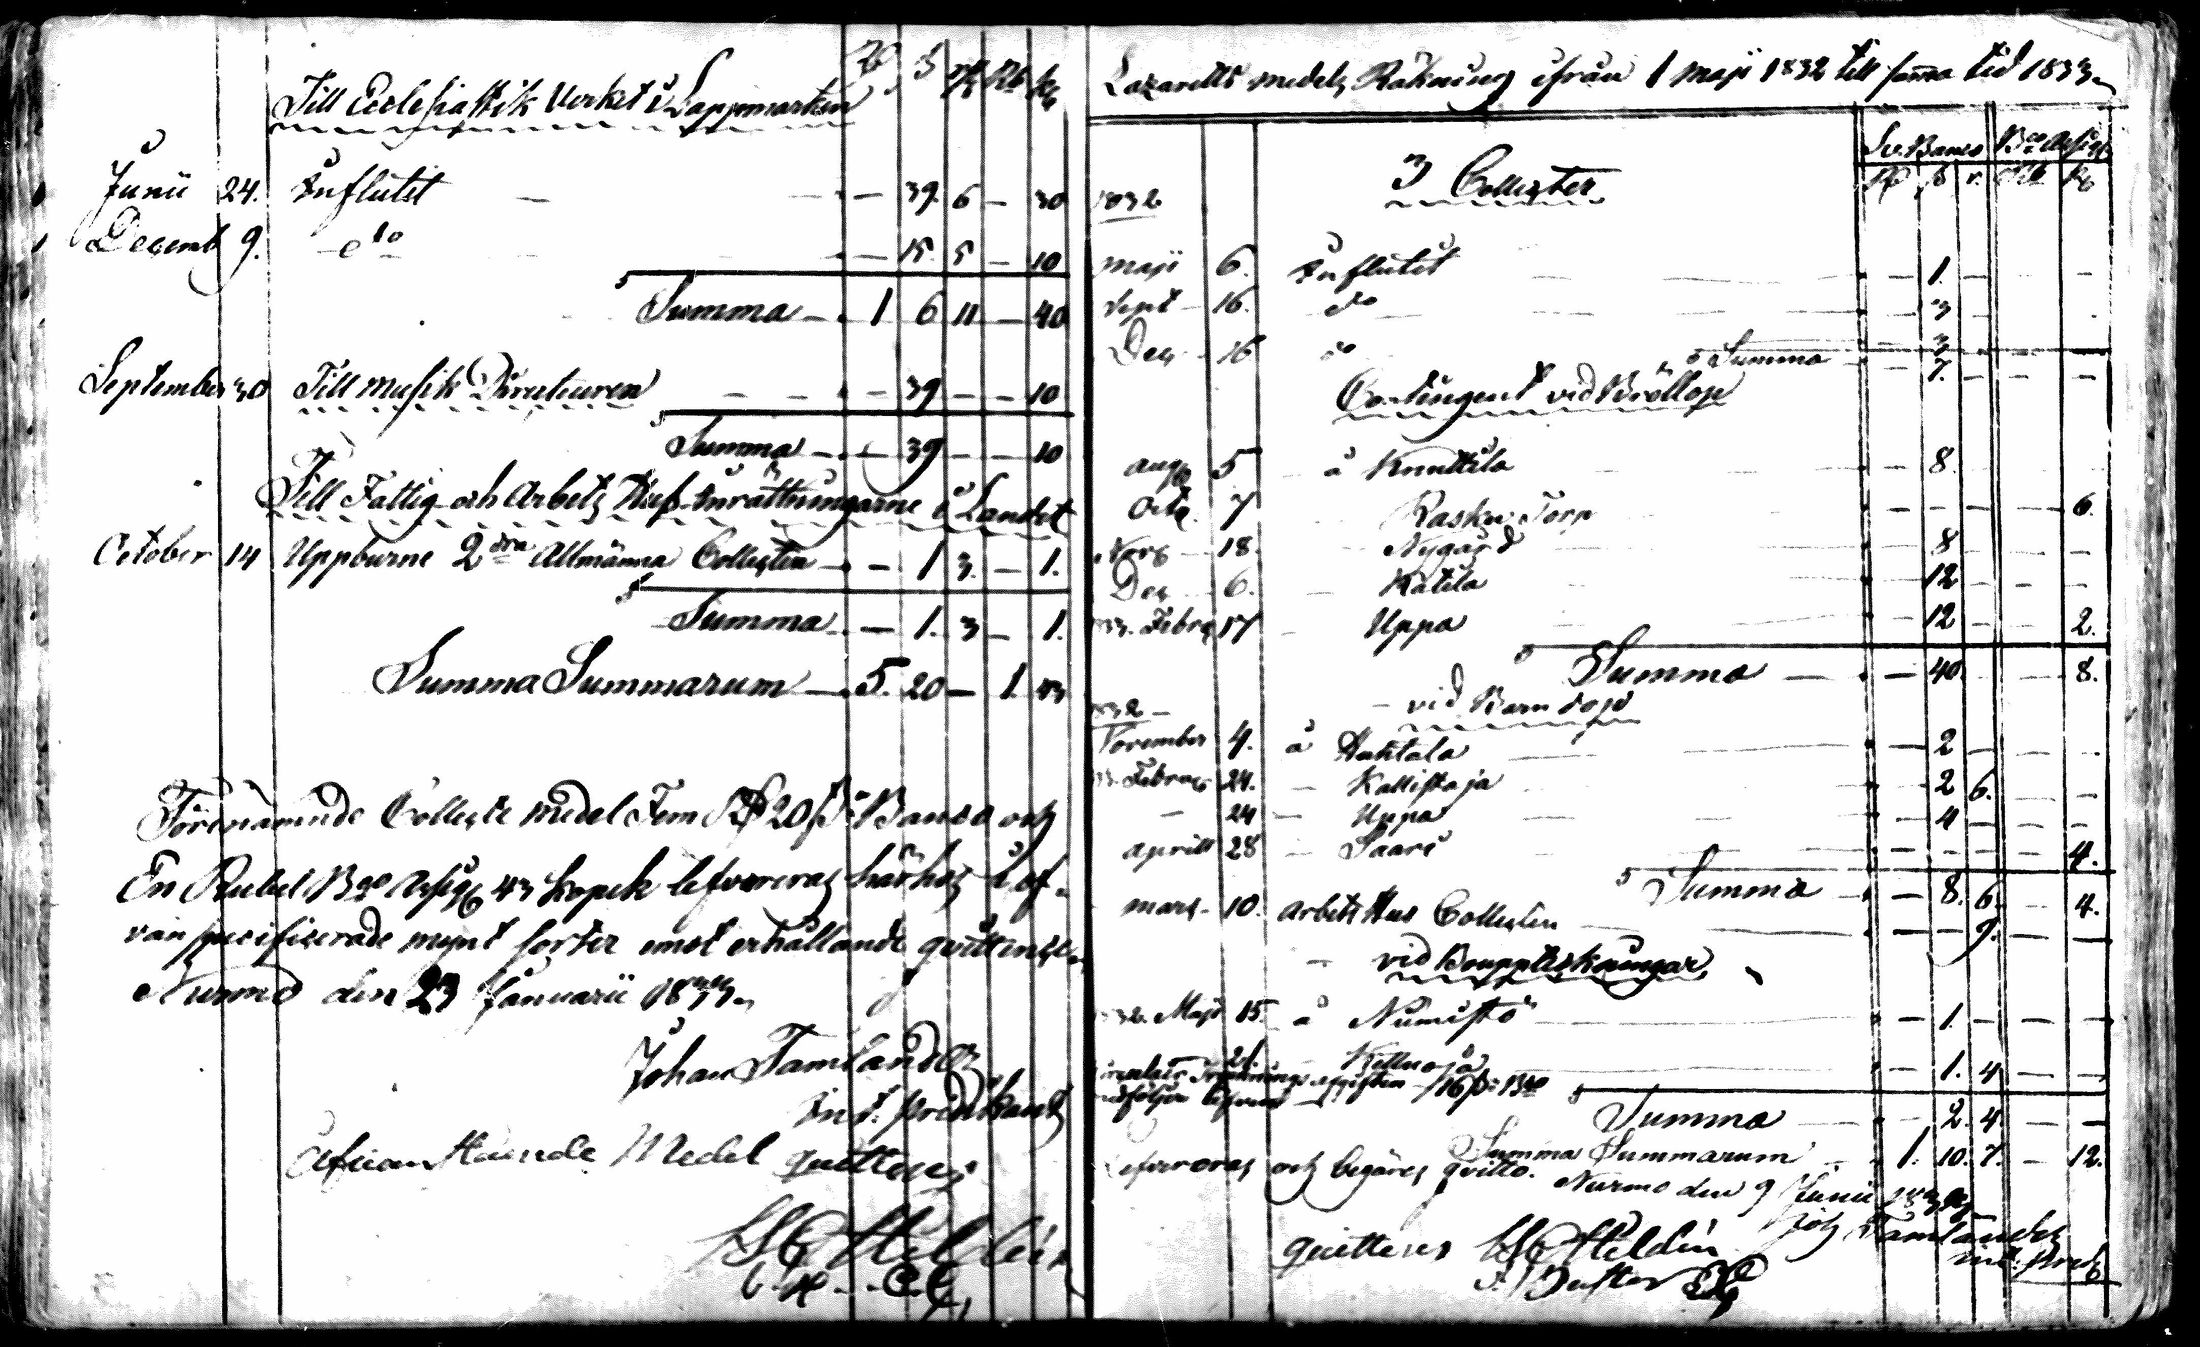 Till Ecclesiastik Verket i Lappmarken
Junii 24. Influtit — — 39. 6 — 30
Decemb 9. — do — 15. 5 — 10
Summa — 1 6 11 — 40
September 30 Till Musik Directeuren — — 39 — — 10
Summa — 39 — — 10
Till Fattig och Arbets Hus Inrättningarne i Landet
October 14 Uppburne 2dra Allmänna Collecten — — 1 3. — 1.
Summa — 1. 3 — 1.
Summa Summarum — 5. 20 — 1. 43
Förenämnde Collecte medel Fem 20 Banco och
En Rubel Bco Assig 43 Kopek lefvereras härhos i of-
van specificerade mynt sorter emot erhållande qvittens
Nurmo den 23 Januarii 1833.
Johan Tamlander
Afvanstående Medel quitteras
Lazaretts medels Räkning ifrån 1 Maji 1832 till samma tid 1833.
Sv. Banco Bco Assig
1832 3 Collecter
Maji 6. Influtit — 1. — —
Sept 16. do — 3
Dec 16 do — 3
Summa — 7. — — —
Contingent vid Bröllop
Aug 5 å Knuttila — 8
Octb. 7 Rasku Torp — — — 6.
Novb 18 Nygård — 8 — —
Dec 6. Katila — 12 — —
33. Febr 17 Uppa — 12 — 2.
Summa — 40. — 8.
1832 — vid Barndop
November 4. å Hahtala — 2 — —
33. Februar 24. — Kallistaja — 2 6. —
— 24 — Uppa — 4 — —
Aprill 28 — Saari — — — 4.
Summa — 8. 6. — 4.
Mars 10. Arbets Hus Collecten — — 9. —
— vid Bouppteckningar
1832. Maji 15. å Numisto — 1. — —
21. — 1. 4 —
Summa — 2. 4 — —
Summa Summarum — 1. 10. 7. — 12.
Lefvereras och begäres qvitto. Nurmo den 9 Junii 1833
Joh Tamlander
quitteras